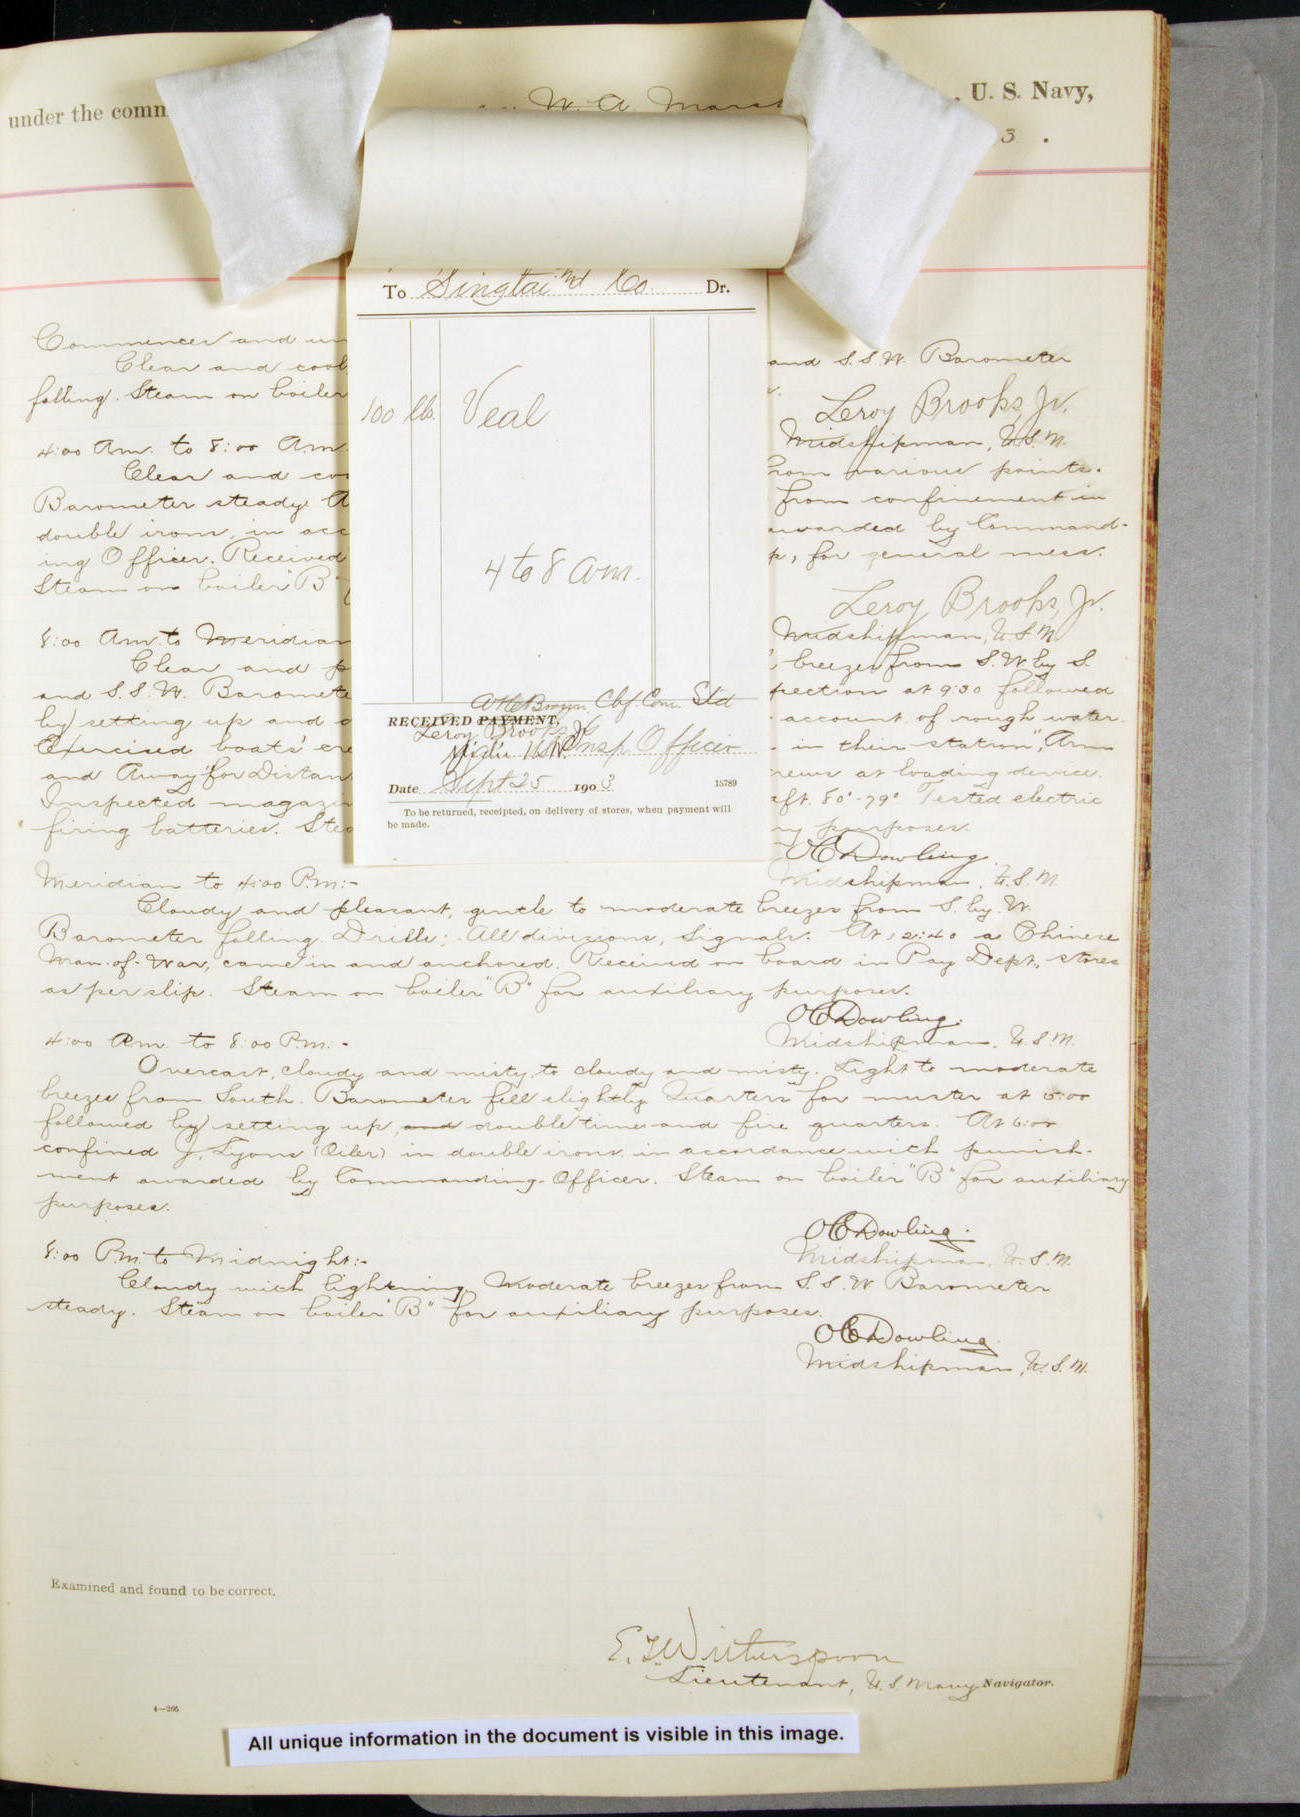 under the comm
W. A. Marsh
, U. S. Navy,
3 .
To Singtai and Co. Dr.
100 lb. Veal
4 to 8 am.
Cbf. Com. Std
RECEIVED PAYMENT,
Leroy Brooks Jr
Insp. Officer
Date Sept 25 1903
15789
To be returned, receipted, on delivery of stores, when payment will
be made.
Commences and un
Clear and cool, and S.S.W. Barometer
falling. Steam on boiler
Leroy Brooks, Jr.
Midshipman, U.S.N.
4:00 Am. to 8:00 Am.
Clear and coo from various points.
Barometer steady. from confinement in
double irons, in acc awarded by Command-
ing Officer. Received for general mess.
Steam on boiler "B"
Leroy Brooks, Jr.
Midshipman, U.S.N
8:00 Am. to Meridian
Clear and p breezes from S.W. by S.
and S.S.W. Baromete pection at 9:30 followed
by setting up and d account of rough water.
Exercised boats' cre in their station", Arm
and Away for Distan rews at loading device.
Inspected magazin aft. 80°-79° Tested electric
firing batteries. Stea ry purposes.
O C Dowling
Midshipman, U.S.N.
Meridian to 4:00 P.m:-
Cloudy and pleasant, gentle to moderate breezes from S. by. W.
Barometer falling. Drills; All divisions, Signals. At 12:40 a Chinese
Man-of-War, came in and anchored. Received on board in Pay Dept., stores
as per slip. Steam on boiler "B" for auxiliary purposes.
O C Dowling.
Midshipman, U.S.N.
4:00 Pm. to 8:00 P.m.:-
Overcast, cloudy and misty, to cloudy and misty. Light to moderate
breezes from South. Barometer fell slightly. Quarters for muster at 5:00
followed by setting up, and double time and fire quarters. At 6:00
confined J. Lyons (Oiler) in double irons in accordance with punish-
ment awarded by Commanding Officer. Steam on boiler "B" for auxiliary
purposes.
O C Dowling.
Midshipman, U.S.N.
8:00 P.m. to Midnight:-
Cloudy with lightning. Moderate breezes from S.S.W Barometer
steady. Steam on boiler "B" for auxiliary purposes.
O C Dowling.
Midshipman, U.S.N.
Examined and found to be correct.
E. T. Witherspoon
Lieutenant, U.S. Navy Navigator.
4—266
All unique information in the document is visible in this image.